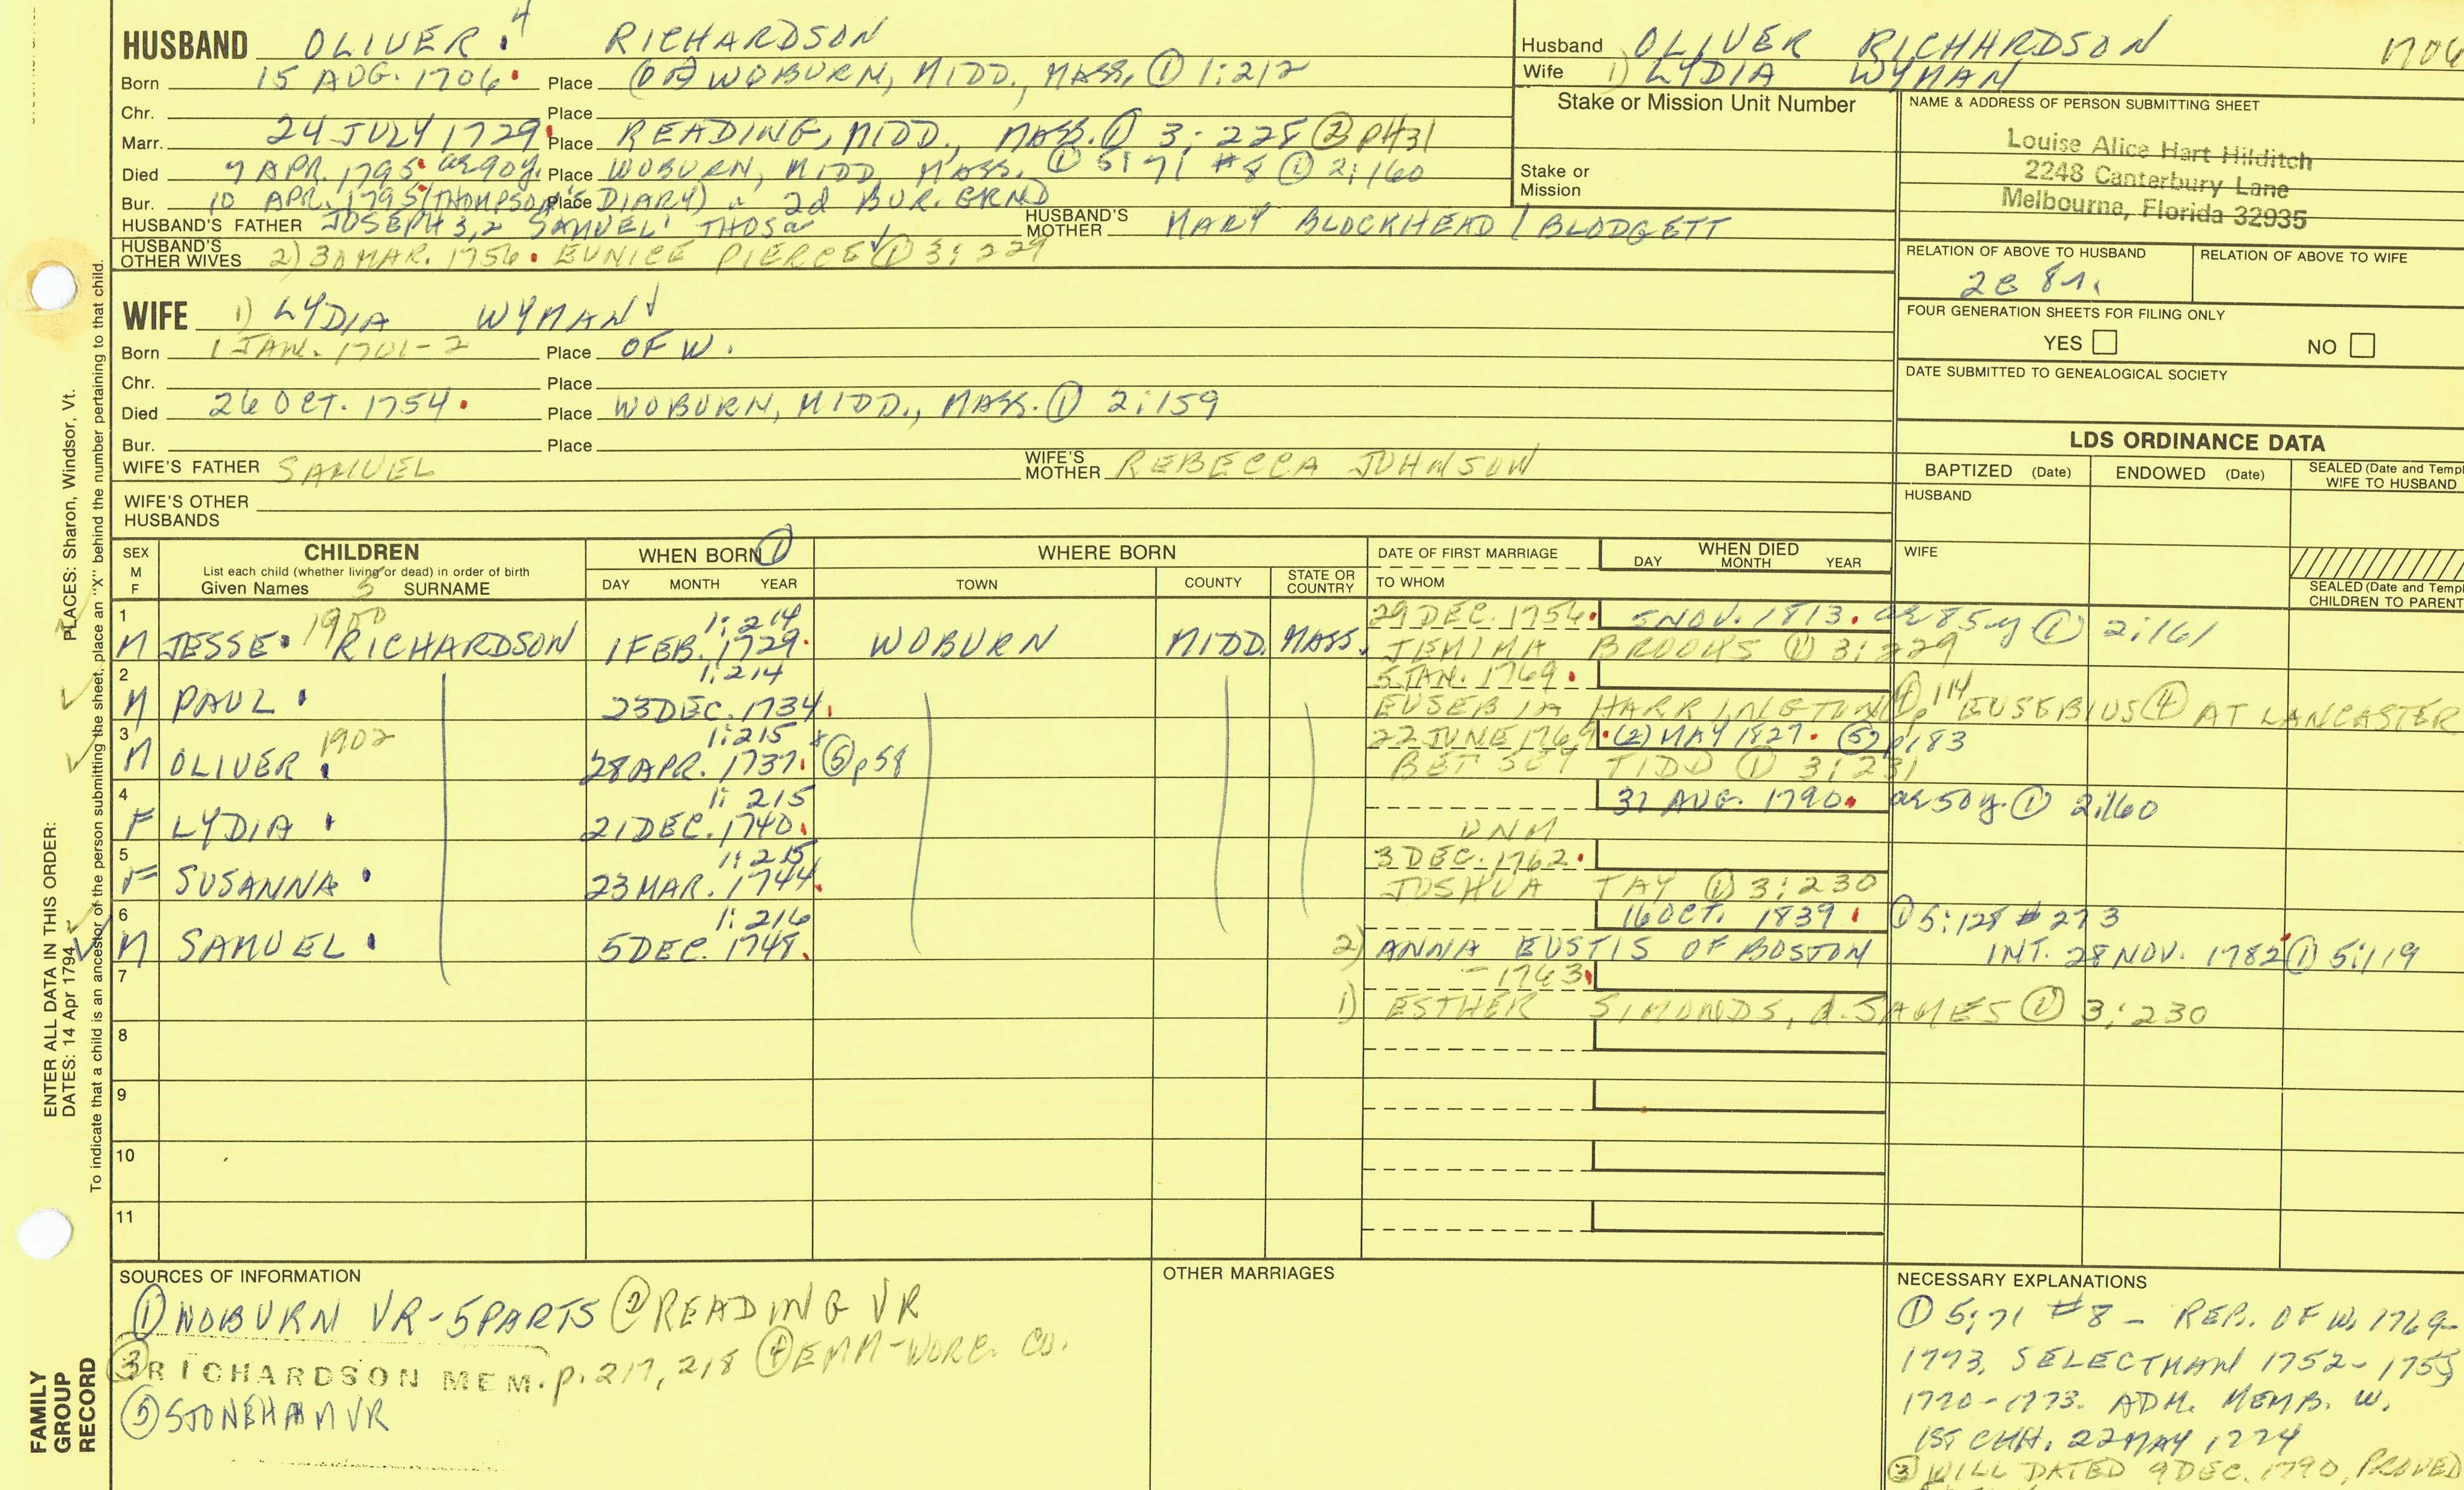 HUSBAND OLIVER 4 RICHARDSON
Born 15 AUG. 1706 Place (OF) WOBURN, MIDD., MASS, ① 1:212
Chr. Place
Marr. 24 JULY 1729 Place READING, MIDD., MASS. ① 3:228 ② p431
Died 7 APR. 1795 ae 90y. Place WOBURN, MIDD, MASS. ① 5:71 #8 ① 2:160
Bur. 10 APR. 1795 (THOMPSON'S DIARY) Place 2d BUR. GRND
HUSBAND'S FATHER JOSEPH 3,2 SAMUEL' THOS HUSBAND'S MOTHER MARY BLOCKHEAD / BLODGETT
HUSBAND'S OTHER WIVES 2) 30 MAR. 1756 EUNICE PIERCE ① 3:229
WIFE 1) LYDIA WYMAN
Born 1 JAN. 1701-2 Place OF W.
Chr. Place
Died 26 OCT. 1754 Place WOBURN, MIDD., MASS. ① 2:159
Bur. Place
WIFE'S FATHER SAMUEL WIFE'S MOTHER REBECCA JOHNSON
WIFE'S OTHER HUSBANDS
Husband OLIVER RICHARDSON 1706
Wife 1) LYDIA WYMAN
Stake or Mission Unit Number
Stake or Mission
NAME & ADDRESS OF PERSON SUBMITTING SHEET
Louise Alice Hart Hilditch
2248 Canterbury Lane
Melbourne, Florida 32935
RELATION OF ABOVE TO HUSBAND RELATION OF ABOVE TO WIFE
FOUR GENERATION SHEETS FOR FILING ONLY
YES NO
DATE SUBMITTED TO GENEALOGICAL SOCIETY
LDS ORDINANCE DATA
BAPTIZED (Date) ENDOWED (Date) SEALED (Date and Templ
WIFE TO HUSBAND
HUSBAND
WIFE
SEALED (Date and Temp
CHILDREN TO PARENT
SEX M F CHILDREN WHEN BORN ① WHERE BORN DATE OF FIRST MARRIAGE WHEN DIED
List each child (whether living or dead) in order of birth
Given Names 5 SURNAME DAY MONTH YEAR TOWN COUNTY STATE OR COUNTRY TO WHOM DAY MONTH YEAR
1 1900 1:214 29 DEC. 1756 5 NOV. 1813. ae 85y ① 2:161
M JESSE RICHARDSON 1 FEB. 1729 WOBURN MIDD. MASS. JEMIMA BROOKS ① 3:229
2 1:214 5 JAN. 1769
M PAUL 23 DEC. 1734 EUSEBIA HARRINGTON ④ p 114 EUSEBIUS ④ AT LANCASTER
3 1902 1:215 22 JUNE 1769 (2) MAY 1827 ⑤ p183
M OLIVER 28 APR. 1737 ⑤ p58 BETSEY TIDD ① 3:231
4 1:215 31 AUG. 1790 ae 50y. ① 2:160
F LYDIA 21 DEC. 1740 UNM
5 1:215 3 DEC. 1762
F SUSANNA 23 MAR. 1744 JOSHUA TAY ① 3:230
6 1:216 16 OCT. 1839 ① 5:128 #273
M SAMUEL 5 DEC. 1748 2) ANNA EUSTIS OF BOSTON INT. 28 NOV. 1782 ① 5:119
7 - 1763
1) ESTHER SIMONDS, d. JAMES ① 3:230
8
9
10
11
SOURCES OF INFORMATION
① WOBURN VR-5PARTS ② READING VR
③ RICHARDSON MEM. p. 217, 218 ④ EMM-WORC. CO.
⑤ STONEHAM VR
OTHER MARRIAGES
NECESSARY EXPLANATIONS
① 5:71 #8 - REP. OF W. 1769-
1773, SELECTMAN 1752-1755
1770-1773. ADM. MEMB. W.
1ST CHH. 22 MAY 1774
③ WILL DATED 9 DEC. 1790, PROVED
ENTER ALL DATA IN THIS ORDER:
DATES: 14 Apr 1794 PLACES: Sharon, Windsor, Vt.
To indicate that a child is an ancestor of the person submitting the sheet, place an "X" behind the number pertaining to that child.
FAMILY
GROUP
RECORD